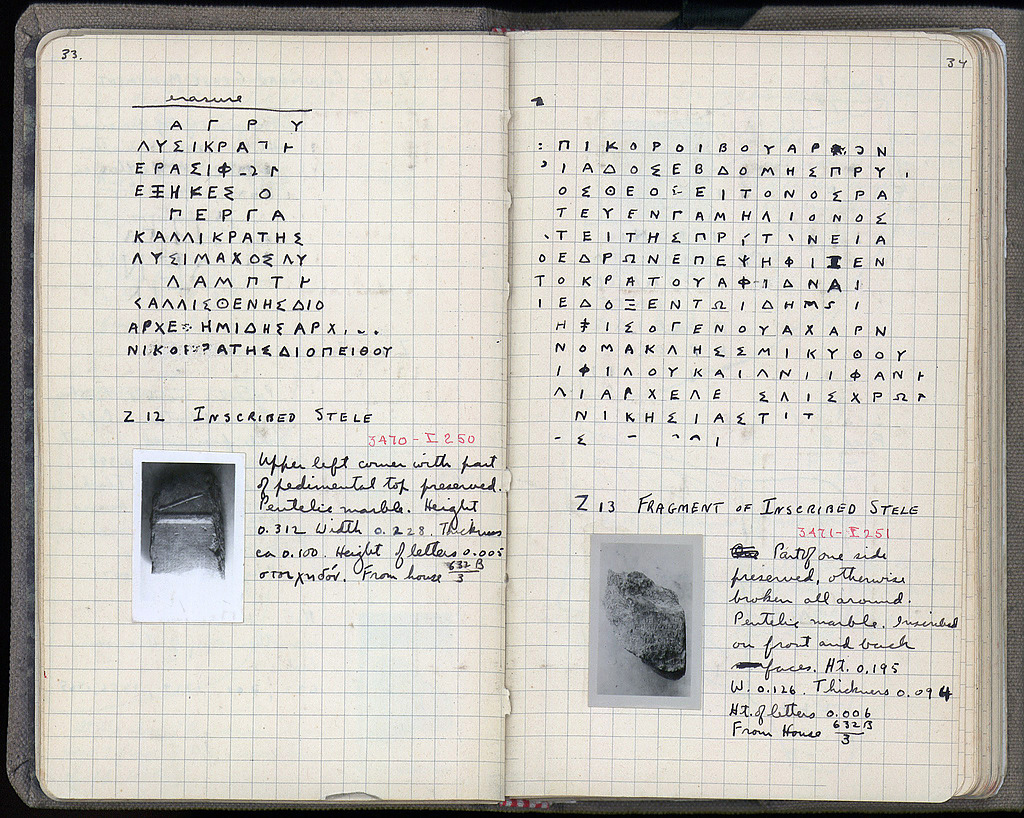 33.
erasure
Α Γ Ρ Υ
ΛΥΣΙΚΡΑΤ
ΕΡΑΣΙΦ
ΕΞΗΚΕΣ Ο
ΠΕΡΓΑ
ΚΑΛΛΙΚΡΑΤΗΣ
ΛΥΣΙΜΑΧΟΣΛΥ
ΛΑΜΠΤ
ΚΑΛΛΙΣΘΕΝΗΣΔΙΟ
ΑΡΧΕ ΗΜΙΔΗΣΑΡΧ
ΝΙΚΟ ΡΑΤΗΣΔΙΟΠΕΙΘΟΥ
Z 12 INSCRIBED STELE
3470 - I 250
Upper left corner with part
of pedimental top preserved.
Pentelic marble. Height
0.312 Width 0.228. Thickness
ca 0.100. Height of letters 0.005
στοιχηδόν. From house 632 B/3
34
ΠΙΚΟΡΟΙΒΟΥΑΡ ΟΝ
ΙΑΔΟΣΕΒΔΟΜΗΣΠΡΥ
ΟΣΘΕΟΣΕΙΤΟΝΟΣΡΑ
ΤΕΥΕΝΓΑΜΗΛΙΟΝΟΣ
ΤΕΙΤΗΣΠΡΥΤΑΝΕΙΑ
ΟΕΔΡΩΝΕΠΕΨΗΦΙΙΕΝ
ΤΟΚΡΑΤΟΥΑΦΙΔΝΑΙ
ΙΕΔΟΞΕΝΤΩΙΔΗΜ Ι
ΗΦΙΣΟΓΕΝΟΥΑΧΑΡΝ
ΝΟΜΑΚΛΗΣΣΜΙΚΥΘΟΥ
ΙΦΙΛΟΥΚΑΙΛΝΙΙΦΑΝ
ΛΙΑΡΧΕΛΕ ΣΛΙΣΧΡΩ
ΝΙΚΗΣΙΑΣΤ Τ
Σ Ι
Z 13 FRAGMENT OF INSCRIBED STELE
3471 - I 251
Part of one side
preserved, otherwise
broken all around.
Pentelic marble. Inscribed
on front and back
faces. Ht. 0.195
W. 0.126. Thickness 0.094
Ht. of letters 0.006
From House 632 B/3